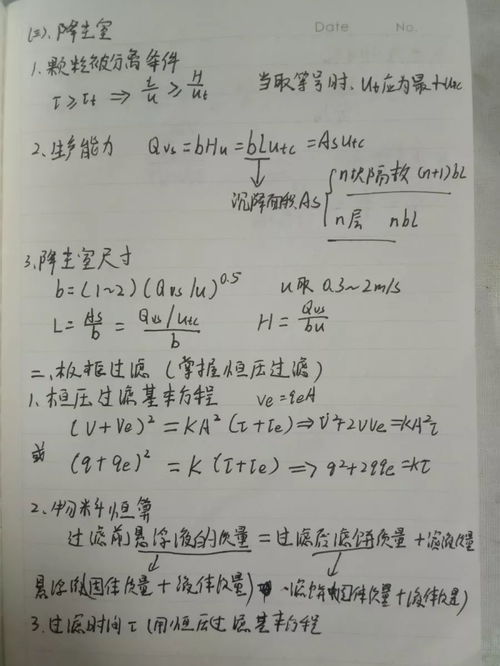 Date No.
(三). 降尘室
1. 颗粒被分离条件
τ ≥ τt ⇒ L/u ≥ H/ut 当取等号时, ut应为最小utc
2. 生产能力 Qvs = bHu = bLutc = Asutc
沉降面积As { n块隔板 (n+1)bL
n层 nbL
3. 降尘室尺寸
b = (1~2)(Qvs/u)^0.5 u取 0.3~2m/s
L = As/b = (Qvs/utc)/b H = Qvs/bu
二、板框过滤 (掌握恒压过滤)
1. 恒压过滤基本方程 Ve = qeA
(V+Ve)² = KA²(τ+τe) ⇒ V²+2VVe = KA²τ
或 (q+qe)² = K(τ+τe) ⇒ q²+2qqe = Kτ
2. 物料恒算
过滤前悬浮液的质量 = 过滤后滤饼质量 + 滤液质量
悬浮液(固体质量 + 液体质量) 滤饼(固体质量 + 液体质量)
3. 过滤时间 τ (用恒压过滤基本方程